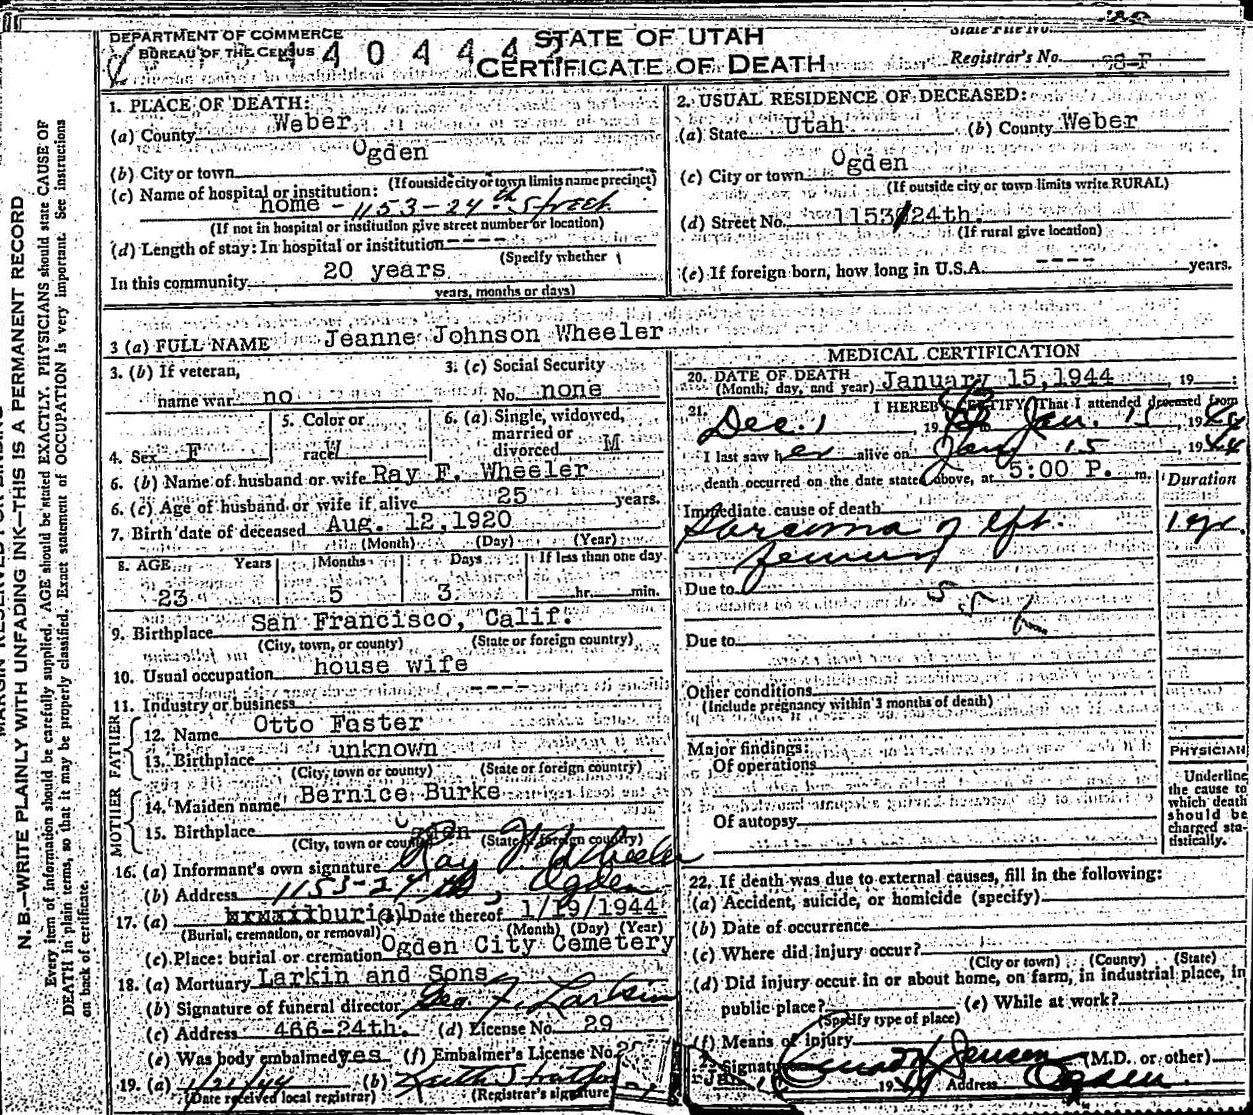 DEPARTMENT OF COMMERCE
BUREAU OF THE CENSUS
STATE OF UTAH
CERTIFICATE OF DEATH
State File No.
Registrar's No.
MARGIN RESERVED FOR BINDING
N. B.—WRITE PLAINLY WITH UNFADING INK—THIS IS A PERMANENT RECORD
Every item of information should be carefully supplied. AGE should be stated EXACTLY. PHYSICIANS should state CAUSE OF
DEATH in plain terms, so that it may be properly classified. Exact statement of OCCUPATION is very important. See instructions
on back of certificate.
1. PLACE OF DEATH:
(a) County Weber
(b) City or town Ogden
(If outside city or town limits name precinct)
(c) Name of hospital or institution:
home - 1153-24th Street
(If not in hospital or institution give street number or location)
(d) Length of stay: In hospital or institution ----
(Specify whether
In this community 20 years
years, months or days)
2. USUAL RESIDENCE OF DECEASED:
(a) State Utah (b) County Weber
(c) City or town Ogden
(If outside city or town limits write RURAL)
(d) Street No. 1153 24th.
(If rural give location)
(e) If foreign born, how long in U.S.A. ---- years.
3 (a) FULL NAME Jeanne Johnson Wheeler
3. (b) If veteran,
name war no
3. (c) Social Security
No. none
4. Sex F
5. Color or
race W
6. (a) Single, widowed,
married or
divorced M
6. (b) Name of husband or wife Ray F. Wheeler
6. (c) Age of husband or wife if alive 25 years.
7. Birth date of deceased Aug. 12,1920
(Month) (Day) (Year)
8. AGE Years Months Days If less than one day
23 5 3 hr. min.
9. Birthplace San Francisco, Calif.
(City, town, or county) (State or foreign country)
10. Usual occupation house wife
11. Industry or business ----
FATHER
12. Name Otto Faster
13. Birthplace unknown
(City, town or county) (State or foreign country)
MOTHER
14. Maiden name Bernice Burke
15. Birthplace Ogden
(City, town or county) (State or foreign country)
16. (a) Informant's own signature Ray F Wheeler
(b) Address 1153-24 th, Ogden
17. (a) burial (b) Date thereof 1/19/1944
(Burial, cremation, or removal) (Month) (Day) (Year)
(c) Place: burial or cremation Ogden City Cemetery
18. (a) Mortuary Larkin and Sons
(b) Signature of funeral director Geo F. Larkin
(c) Address 466-24th. (d) License No. 29
(e) Was body embalmed yes (f) Embalmer's License No.
19. (a) 1/21/44 (b)
(Date received local registrar) (Registrar's signature
MEDICAL CERTIFICATION
20. DATE OF DEATH
(Month, day, and year) January 15,1944, 19
21. I HEREBY CERTIFY That I attended deceased from
Dec. 1, 19 Jan. 15, 1944
I last saw her alive on Jan 15, 1944
death occurred on the date stated above, at 5:00 P. m.
Duration
Immediate cause of death
Sarcoma of left 1 yr.
femur
Due to
55 6
Due to
Other conditions
(Include pregnancy within 3 months of death)
Major findings:
Of operations
Of autopsy
PHYSICIAN
Underline
the cause to
which death
should be
charged sta-
tistically.
22. If death was due to external causes, fill in the following:
(a) Accident, suicide, or homicide (specify)
(b) Date of occurrence
(c) Where did injury occur?
(City or town) (County) (State)
(d) Did injury occur in or about home, on farm, in industrial place, in
public place? (e) While at work?
(Specify type of place)
(f) Means of injury
Signature Jensen (M.D. or other)
Jan. 1944 Address Ogden